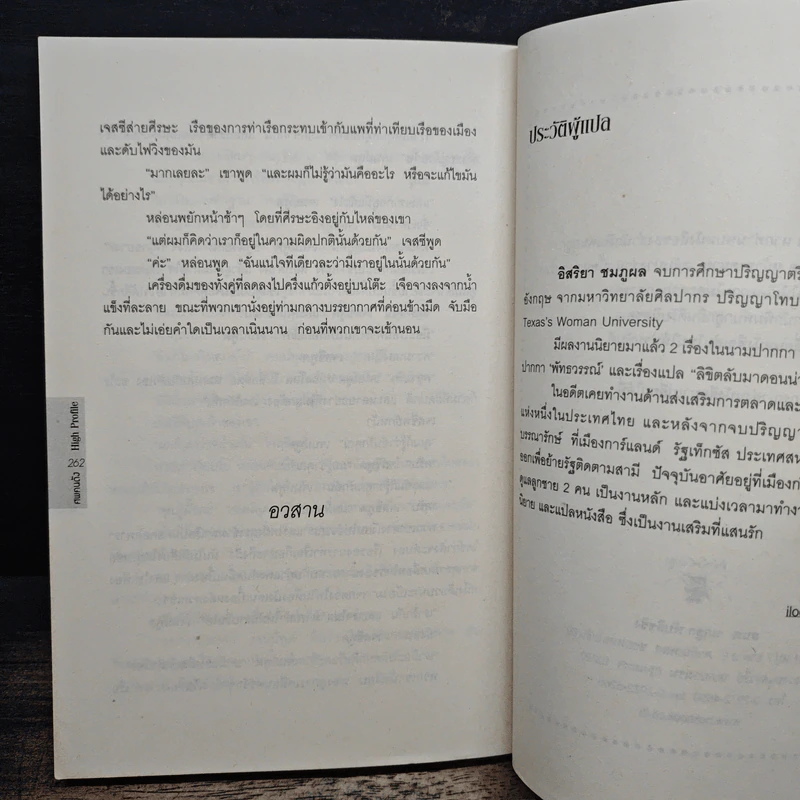 เจสซีส่ายศีรษะ เรือของการท่าเรือกระทบเข้ากับแพที่ท่าเทียบเรือของเมือง
และดับไฟวิ่งของมัน
“มากเลยละ” เขาพูด “และผมก็ไม่รู้ว่ามันคืออะไร หรือจะแก้ไขมัน
ได้อย่างไร”
หล่อนพยักหน้าช้าๆ โดยที่ศีรษะอิงอยู่กับไหล่ของเขา
“แต่ผมก็คิดว่าเราก็อยู่ในความผิดปกตินั้นด้วยกัน” เจสซีพูด
“ค่ะ” หล่อนพูด “ฉันแน่ใจทีเดียวละว่ามีเราอยู่ในนั้นด้วยกัน”
เครื่องดื่มของทั้งคู่ที่ลดลงไปครึ่งแก้วตั้งอยู่บนโต๊ะ เจือจางลงจากน้ำ
แข็งที่ละลาย ขณะที่พวกเขานั่งอยู่ท่ามกลางบรรยากาศที่ค่อนข้างมืด จับมือ
กันและไม่เอ่ยคำใดเป็นเวลาเนิ่นนาน ก่อนที่พวกเขาจะเข้านอน
อวสาน
ศพคนดัง 262 High Profile
ประวัติผู้แปล
อิสริยา ชมภูผล จบการศึกษาปริญญาตรี
อังกฤษ จากมหาวิทยาลัยศิลปากร ปริญญาโทบ
Texas's Woman University
มีผลงานนิยายมาแล้ว 2 เรื่องในนามปากกา
ปากกา ‘พัทธวรรณ์’ และเรื่องแปล “ลิขิตลับมาดอนน่า
ในอดีตเคยทำงานด้านส่งเสริมการตลาดและ
แห่งหนึ่งในประเทศไทย และหลังจากจบปริญญา
บรรณารักษ์ ที่เมืองการ์แลนด์ รัฐเท็กซัส ประเทศสห
ออกเพื่อย้ายรัฐติดตามสามี ปัจจุบันอาศัยอยู่ที่เมืองก
ดูแลลูกชาย 2 คน เป็นงานหลัก และแบ่งเวลามาทำงา
นิยาย และแปลหนังสือ ซึ่งเป็นงานเสริมที่แสนรัก
ilo